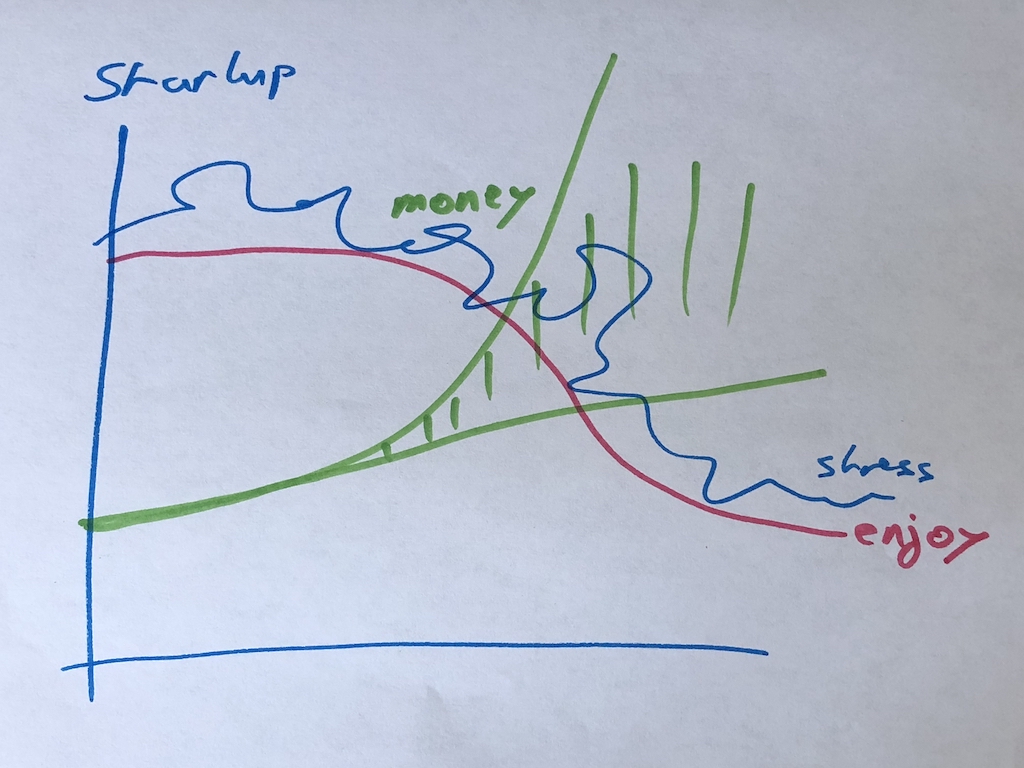 Startup
money
stress
enjoy